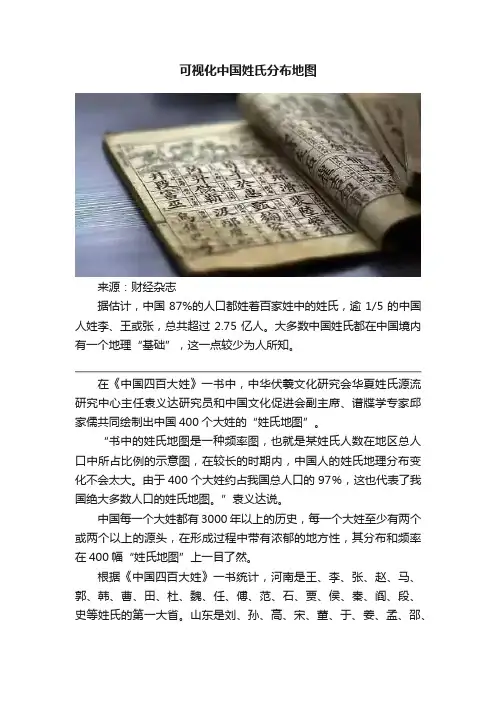 可视化中国姓氏分布地图
来源：财经杂志
据估计，中国87%的人口都姓着百家姓中的姓氏，逾1/5的中国
人姓李、王或张，总共超过2.75亿人。大多数中国姓氏都在中国境内
有一个地理“基础”，这一点较少为人所知。
在《中国四百大姓》一书中，中华伏羲文化研究会华夏姓氏源流
研究中心主任袁义达研究员和中国文化促进会副主席、谱牒学专家邱
家儒共同绘制出中国400个大姓的“姓氏地图”。
“书中的姓氏地图是一种频率图，也就是某姓氏人数在地区总人
口中所占比例的示意图，在较长的时期内，中国人的姓氏地理分布变
化不会太大。由于400个大姓约占我国总人口的97%，这也代表了我
国绝大多数人口的姓氏地图。”袁义达说。
中国每一个大姓都有3000年以上的历史，每一个大姓至少有两个
或两个以上的源头，在形成过程中带有浓郁的地方性，其分布和频率
在400幅“姓氏地图”上一目了然。
根据《中国四百大姓》一书统计，河南是王、李、张、赵、马、
郭、韩、曹、田、杜、魏、任、傅、范、石、贾、侯、秦、阎、段、
史等姓氏的第一大省。山东是刘、孙、高、宋、董、于、姜、孟、邵、